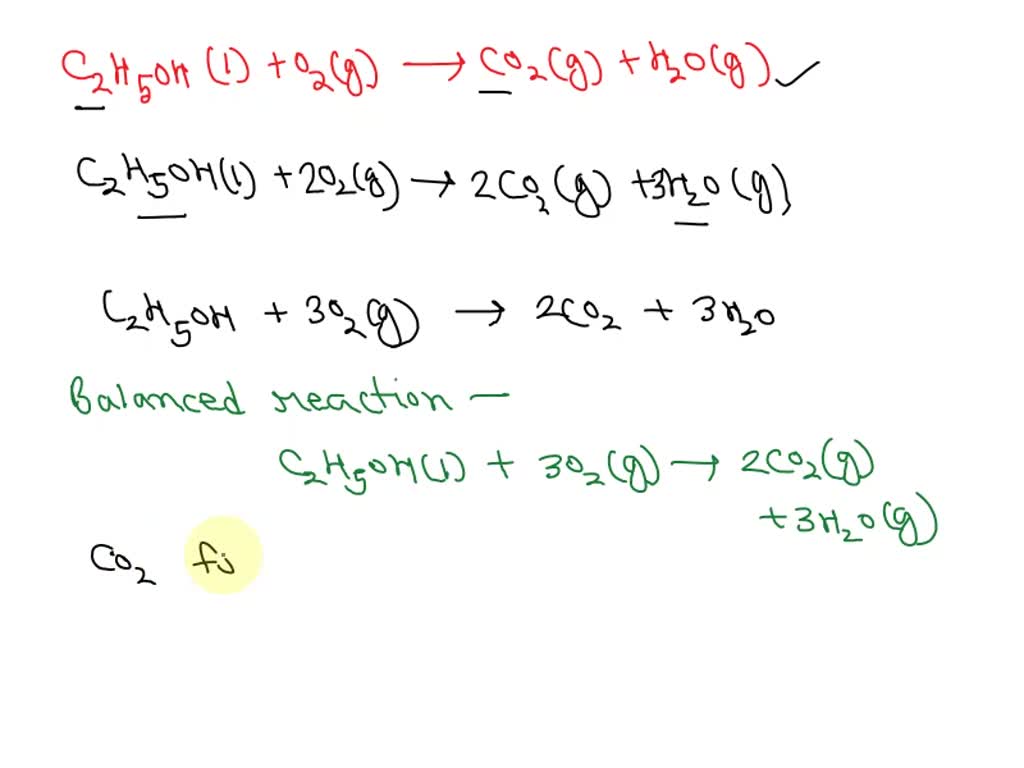 C₂H₅OH (l) + O₂(g) → CO₂(g) + H₂O(g) ✓
C₂H₅OH(l) + 2O₂(g) → 2CO₂(g) + 3H₂O(g)
C₂H₅OH + 3O₂(g) → 2CO₂ + 3H₂O
Balanced reaction —
C₂H₅OH(l) + 3O₂(g) → 2CO₂(g)
+ 3H₂O(g)
CO₂